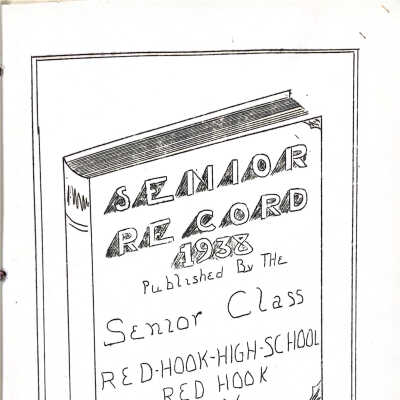 SENIOR
RECORD
1938
Published By THE
Senior Class
RED-HOOK-HIGH-SCHOOL
RED HOOK